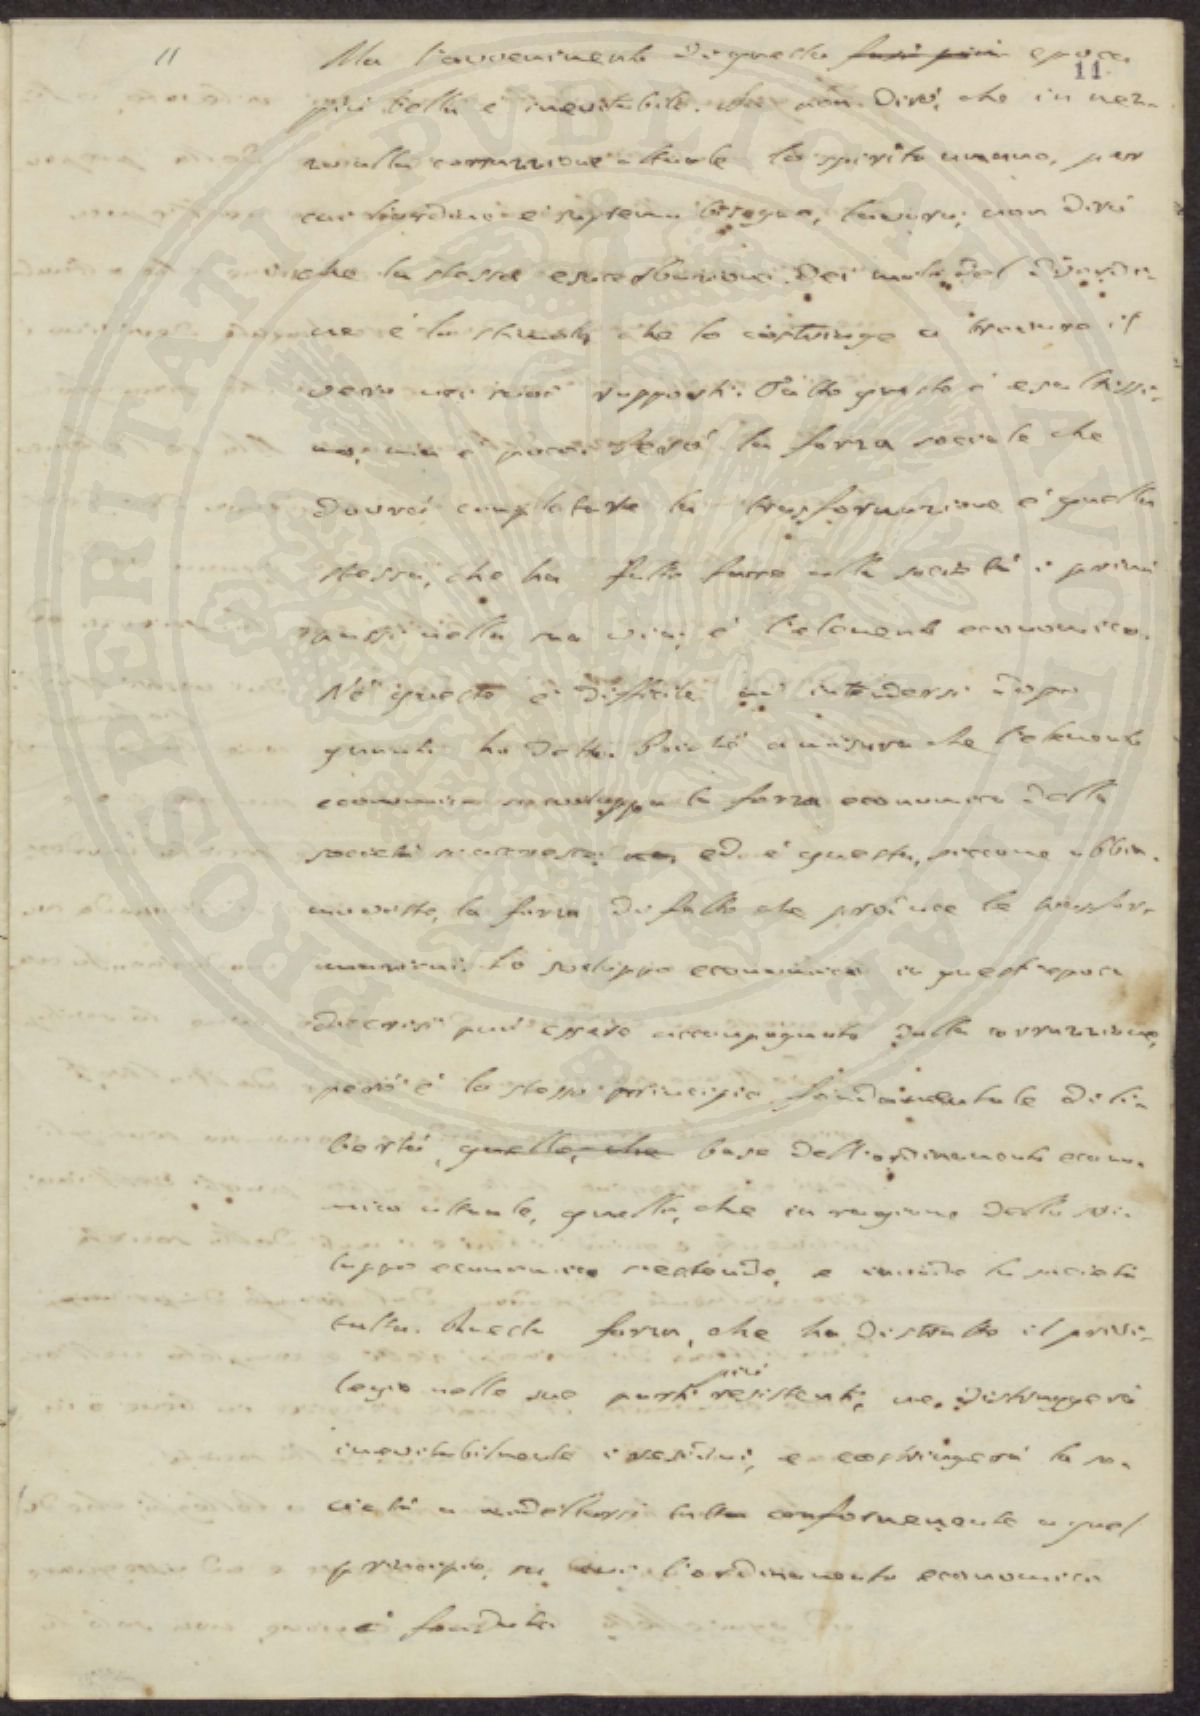 11
Ma l'avvenimento di questa fase più epoca
11
più bella è inevitabile. Io non dirò, che in mez-
zo alla corruzione attuale lo spirito umano, per
cui l'ordine è supremo bisogno, lavora; non dirò
che la stessa esacerbazione dei mali del disordi-
ne è lo stimolo che lo costringe a trovare il
vero nei suoi rapporti. Tutto questo è esattissi-
mo, ma è poco: però la forza sociale che
dovrà completare la trasformazione è quella
stessa, che ha fatto fare alla società i primi
passi nella sua via; è l'elemento economico.
Nè questo è difficile ad intendersi dopo
quanto ho detto. Poichè a misura che l'elemento
economico si sviluppa la forza economica della
società si accresce; ed è questa, siccome abbia-
mo visto, la forza di fatto che produce le trasfor-
mazioni. Lo sviluppo economico in quest'epoca
di crisi può essere accompagnato dalla corruzione,
però è lo stesso principio fondamentale di li-
bertà, quello, che base dell'ordinamento econo-
mico attuale, quello, che in ragione dello svi-
luppo economico si estende, e invade la società
tutta. Questa forza, che ha distrutto il privi-
legio nelle sue parti più resistenti, ne distruggerà
inevitabilmente i residui, e costringerà la so-
cietà a modellarsi tutta conformemente a quel
principio, su cui l'ordinamento economico
è fondato.
PROSPERITATI PVBLICAE AVGENDAE